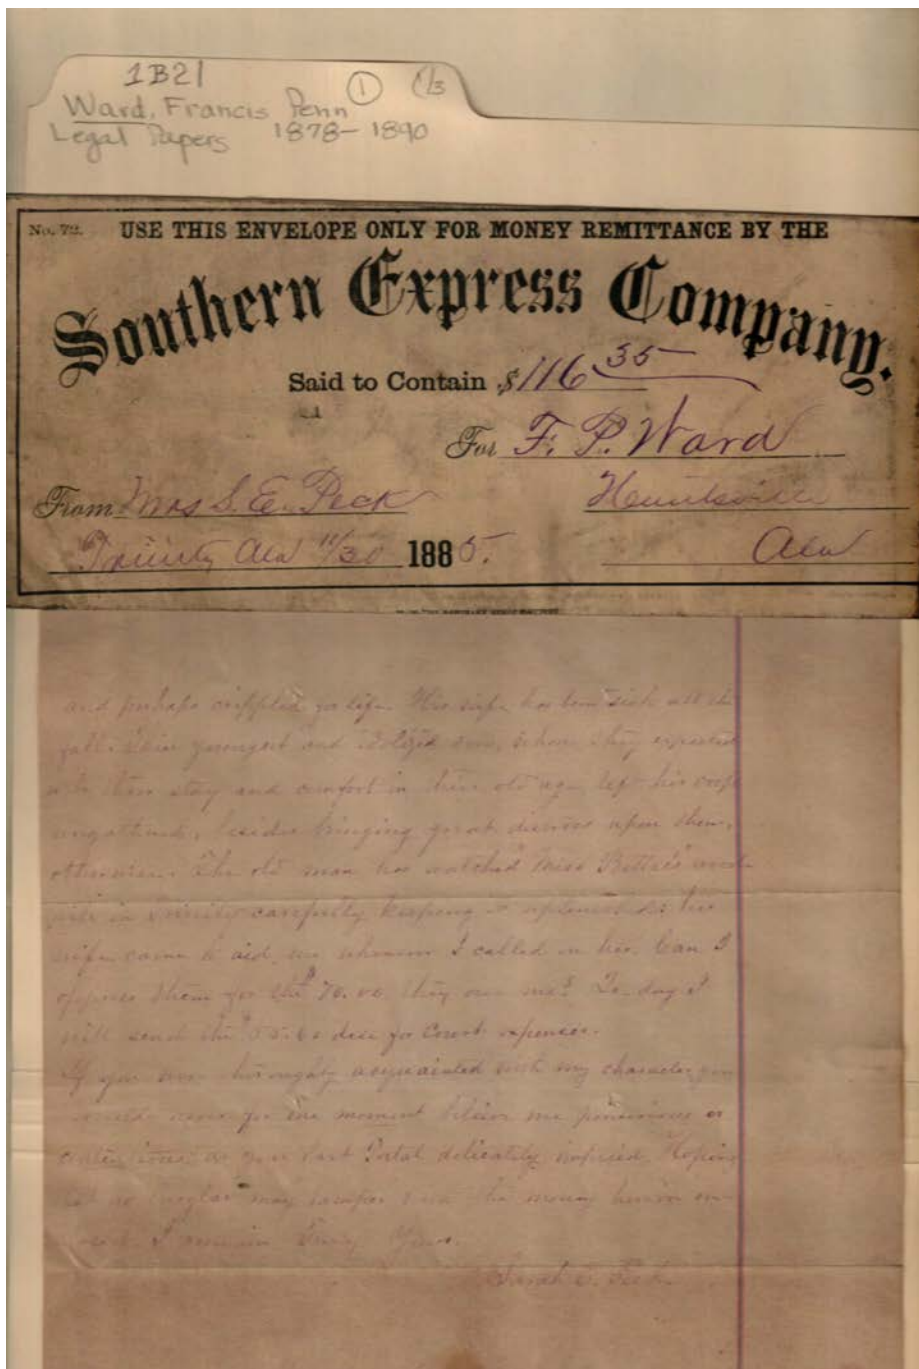 1B21 ① 1/3
Ward, Francis Penn
Legal Papers 1878-1890
No. 72. USE THIS ENVELOPE ONLY FOR MONEY REMITTANCE BY THE
Southern Express Company.
Said to Contain $116 35
For F. P. Ward
From Mrs S. E. Peck Huntsville
Trinity Ala 11/30 1885. Ala
and perhaps crippled for life. His wife has been sick all the
fall. Their youngest and idolized son, whom they expected
stay and comfort in their old age, left his crop
ungathered, besides bringing great distress upon them,
otherwise. The old man has watched "Miss Bettie's"
in Trinity carefully keeping his
wife came to aid me whenever I called on her. Can I
oppress them for the $70.00 they owe me? To-day I
will send the $55.60 due for Court expenses.
If you were thoroughly acquainted with my character you
would never for one moment believe me penurious or
as your last Postal delicately implied. Hoping
no burglar may tamper with the money
I remain Truly Yours.
Sarah E. Peck.